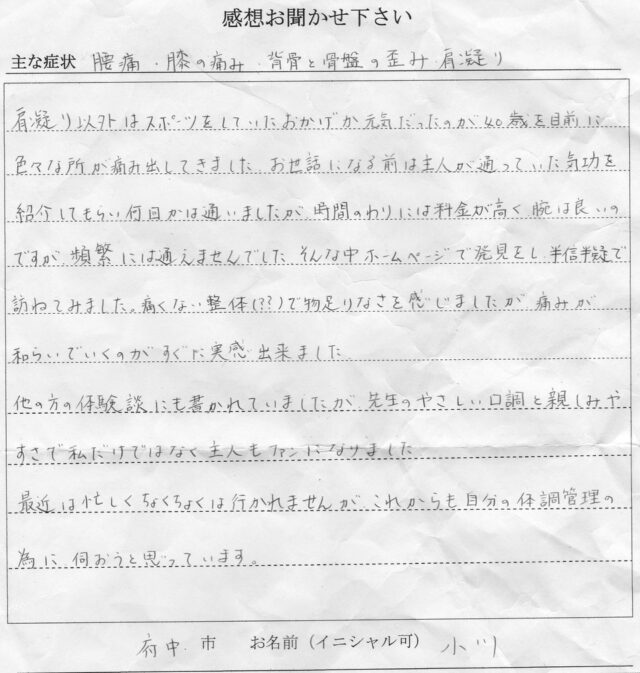 感想お聞かせ下さい
主な症状 腰痛・膝の痛み・背骨と骨盤の歪み・肩凝り
肩凝り以外はスポーツをしていたおかげか元気だったのが40歳を目前に
色々な所が痛み出してきました。お世話になる前は主人が通っていた気功を
紹介してもらい何回かは通いましたが、時間のわりには料金が高く、腕は良いの
ですが、頻繁には通えませんでした。そんな中ホームページで発見をし、半信半疑で
訪ねてみました。痛くない整体(??)で物足りなさを感じましたが、痛みが
和らいでいくのがすぐに実感出来ました。
他の方の体験談にも書かれていましたが、先生のやさしい口調と親しみや
すさで私だけではなく主人もファンになりました。
最近は忙しくちょくちょくは行かれませんが、これからも自分の体調管理の
為に伺おうと思っています。
府中 市 お名前（イニシャル可） 小川